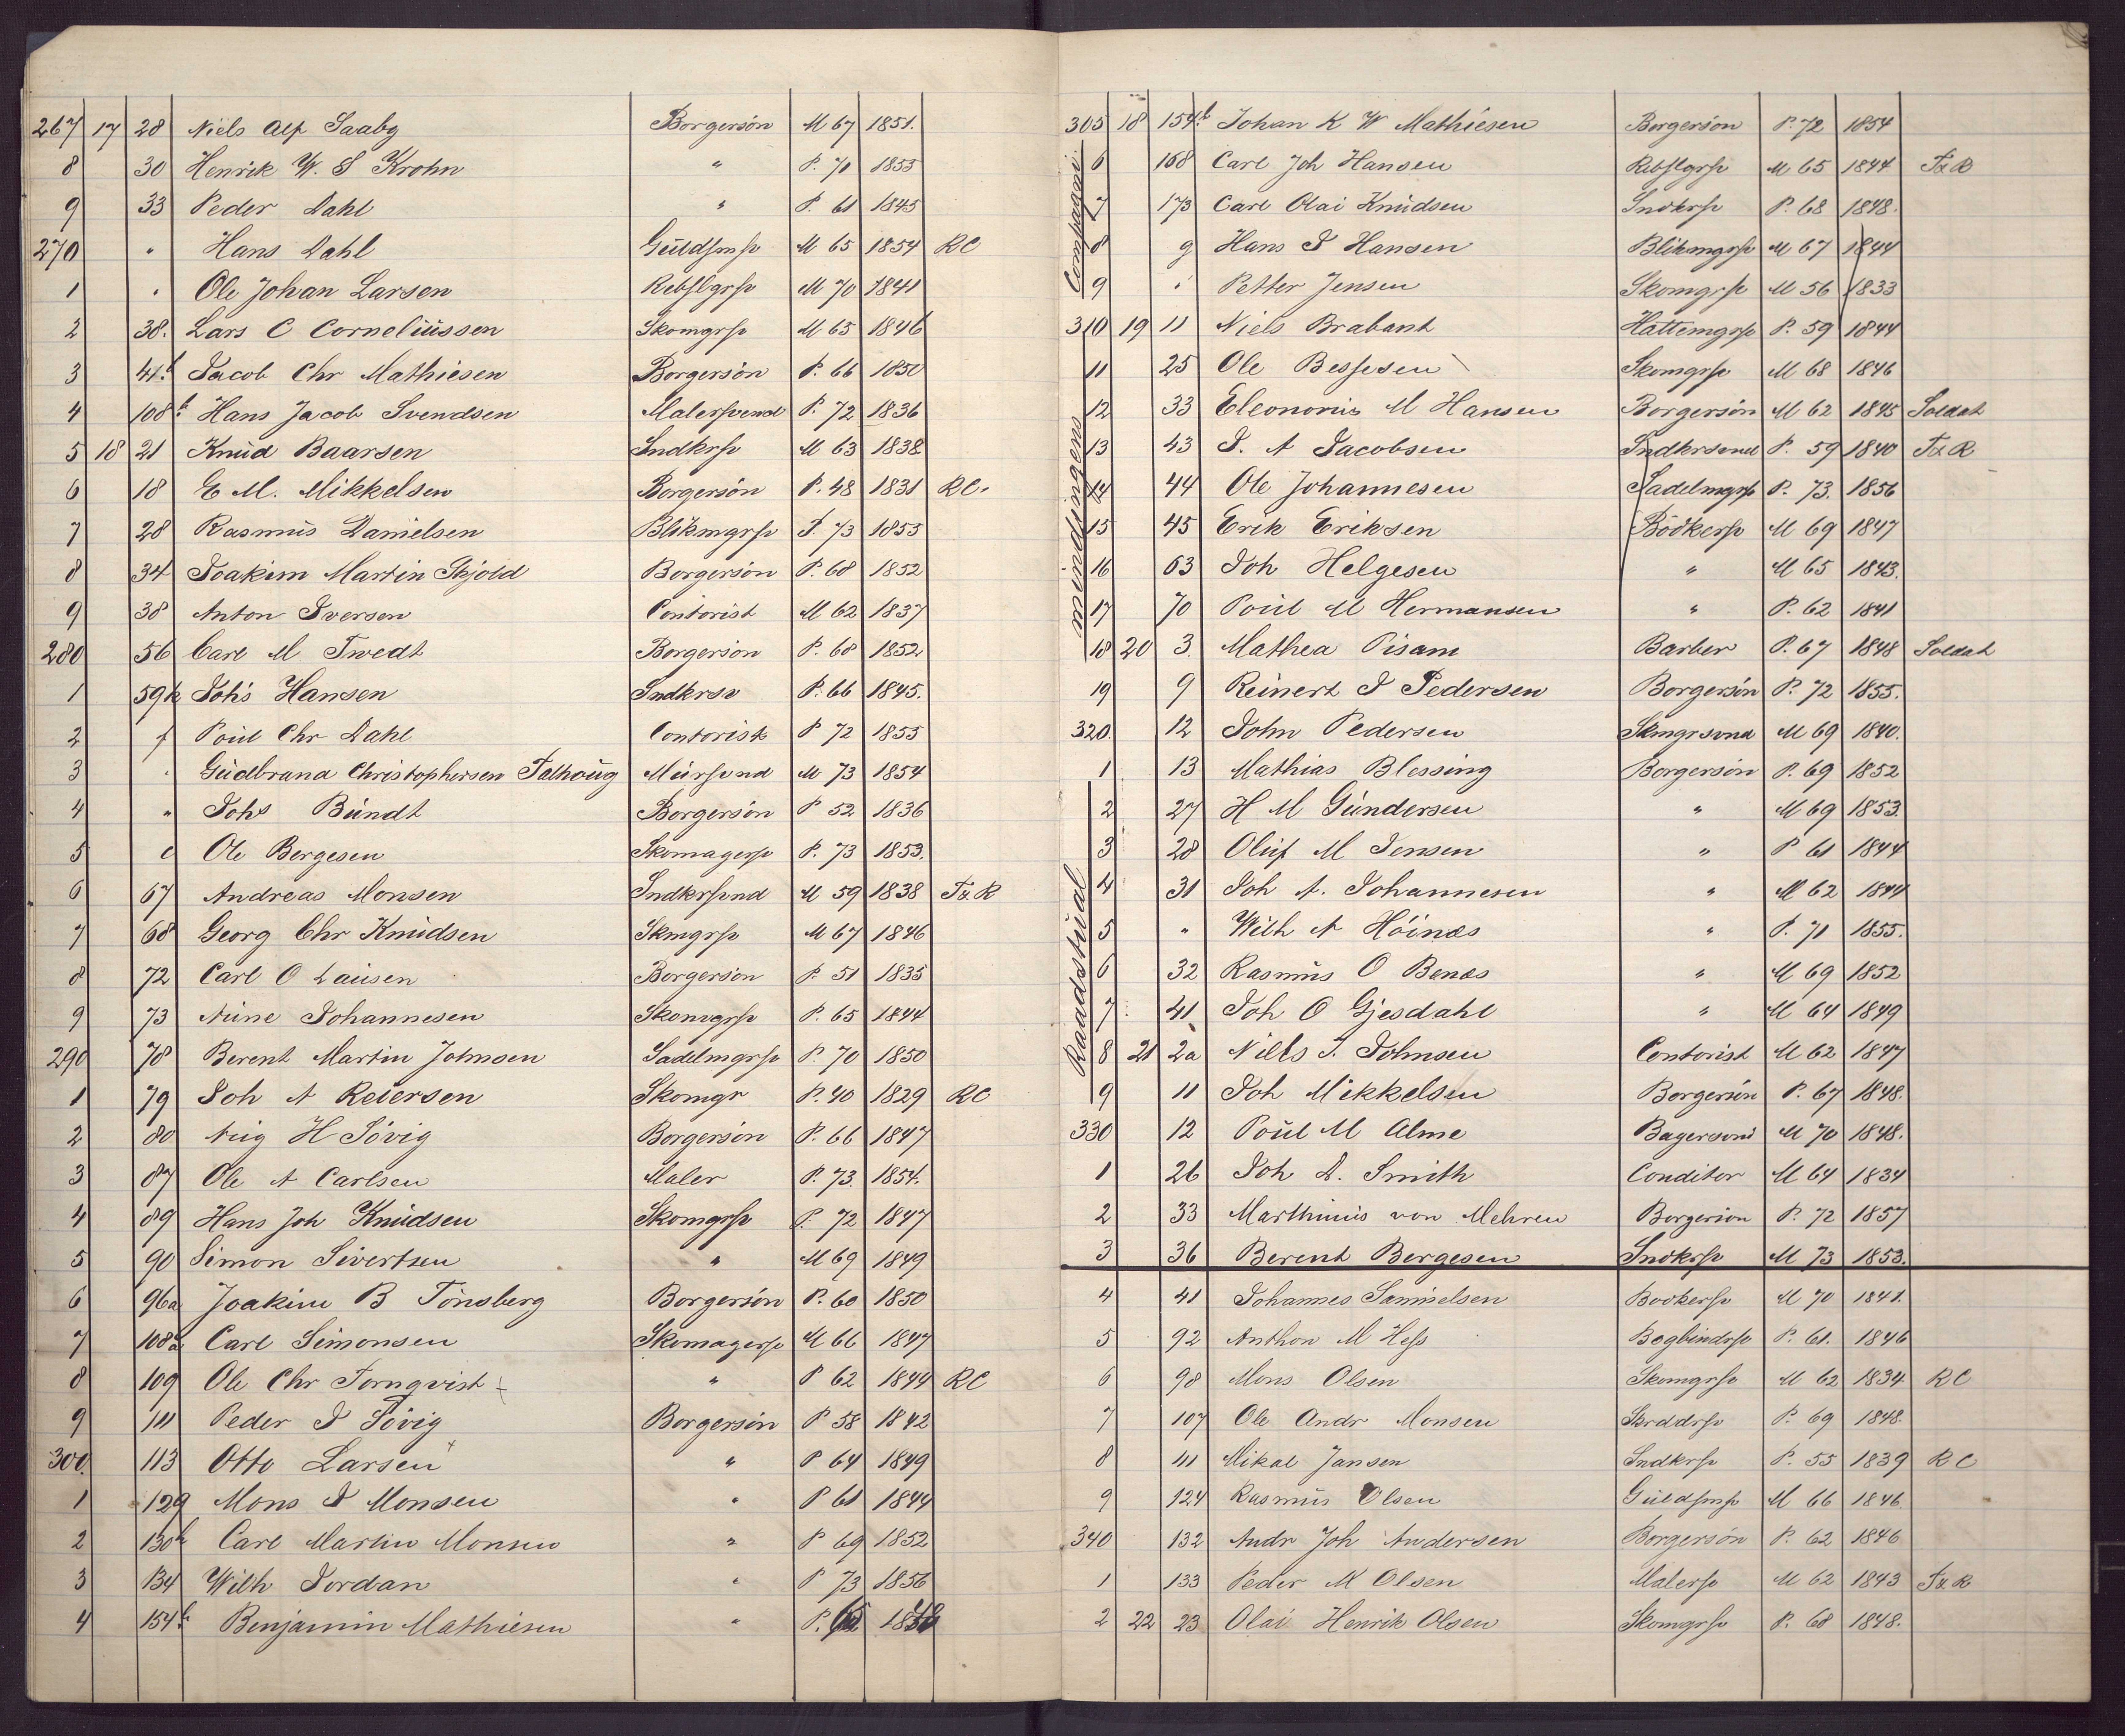 267 17 28 Niels Alf Saabg Borgersön M 67 1851.
8 30 Henrik W. S Krohn " P. 70 1855
9 33 Peder Dahl " P. 61 1845
270 " Hans Dahl Guldsmsv M 65 1854 RC
1 " Ole Johan Larsen Rebslgrsv M 70 1841
2 38. Lars C Corneliussen Skomgrsv M 65 1846
3 41b Jacob Chr Mathiesen Borgersön P. 66 1850
4 108b Hans Jacob Svendsen Malersvend P. 72 1836
5 18 21 Knud Baarsen Sndkrsv M 63 1838
6 18 E M. Mikkelsen Borgersön P. 48 1831 RC.
7 28 Rasmus Danielsen Blikmgrsv P. 73 1855
8 34 Joakim Martin Skjold Borgersön P. 68 1852
9 38 Anton Iversen Contorist M 62 1837
280 56 Carl M Tvedt Borgersön P. 68 1852
1 59k Johs Hansen Sndkrsv P. 66 1845.
2 f Poul Chr Dahl Contorist P 72 1855
3 " Gudbrand Christophersen Falhoug Mursvnd M 73 1854
4 " Johs Bundt Borgersön P 52 1836
5 c Ole Børgesen Skomagersv P. 73 1853.
6 67 Andreas Monsen Sndkrsvnd M 59 1838 Fx R
7 68 Georg Chr Knudsen Skmgrsv M 67 1846
8 72 Carl O Lausen Borgersön P. 51 1835
9 73 Aune Johannesen Skomgrsv P. 65 1844
290 78 Berent Martin Johnsen Sadelmgrsv P. 70 1850
1 79 Joh A Reiersen Skomgr P. 40 1829 RC
2 80 Aug H Sövig Borgersön P. 66 1847
3 87 Ole A Carlsen Maler P. 73. 1854.
4 89 Hans Joh Knudsen Skomgrsv P. 72 1847
5 90 Simon Sivertsen " M 69 1849
6 96a Joakim B Tönsberg Borgersön P. 60 1850
7 108a Carl Simonsen Skomagersv M 66 1847
8 109 Ole Chr Tornqvist " P 62 1844 RC
9 111 Peder I Sövig Borgersön P 58 1842
300. 113 Otto Larsen " P 64 1849
1 129 Mons I Monsen " P 61 1844
2 130b Carl Martin Monsen " P 69 1852
3 134 Wilh Jordan " P 73 1856
4 154b Benjamin Mathiesen " P.
305 18 154b Johan K W Mathiesen Borgersön P. 72 1854
6 168 Carl Joh Hansen Rebslgrsv M 65 1844 Fx R
7 173 Carl Olai Knudsen Sndkrsv P. 68 1848.
8 g Hans I Hansen Blikmgrsv M 67 1844
9 i Petter Jensen Skomgrsv M 56 1833
310 19 11 Niels Brabant Hattemgrsv P. 59 1844
11 25 Ole Bessesen Skomgrsv M 68 1846
12 33 Eleonorus M Hansen Borgersön M 62 1845 Soldat
13 43 I. A Jacobsen Sndkrsvnd P. 59 1840 Fx R
14 44 Ole Johannesen Sadelmgrsv P. 73. 1856
15 45 Erik Eriksen Bödkersv M 69 1847
16 63 Joh Helgesen " M 65 1843.
17 70 Poul M Hermansen " P. 62 1841
18 20 3. Mathea Pisani Barber P. 67 1848 Soldat
19 9 Reinert I Pedersen Borgersön P. 72 1855.
320. 12 John Pedersen Skmgrsvnd M 69 1840.
1 13 Mathias Blessing Borgersön P. 69 1852
2 27 H M Gundersen " M 69 1853.
3 28 Oluf M Jensen " P 61 1844
4 31 Joh A. Johannesen " M 62 1844
5 " Wilh A Höinæs " P. 71 1855.
6 32 Rasmus O Benæs " M 69 1852
7 41 Joh O Gjesdahl " M 64 1849
8 21 2a Niels I. Johnsen Contorist M 62 1847
9 11 Joh Mikkelsen Borgersön P. 67 1848.
330 12 Poul M Alme Bagersvnd M 70 1848.
1 26 Joh D. Smith Conditor M 64 1834
2 33 Marthinus von Mehren Borgersön P. 72 1857
3 36 Berent Børgesen Sndkrsv M 73 1853.
4 41 Johannes Samuelsen Bødkersv M 70 1841.
5 92 Anthon M Hess Bogbindrsv P. 61. 1846
6 98 Mons Olsen Skomgrsv M 62 1834 RC
7 107 Ole Andr Monsen Skrddrsv P. 69 1848.
8 111 Mikal Jansen Sndkrsv P. 55 1839 RC
9 124 Rasmus Olsen Guldsmsv M 66 1846.
340 132 Andr Joh Andersen Borgersön P. 62 1846
1 133 Peder M Olsen Malersv M 62 1843 Fx R
2 22 23 Olai Henrik Olsen Skomgrsv P. 68 1848.
Compagni
mindsingens
Raadstual